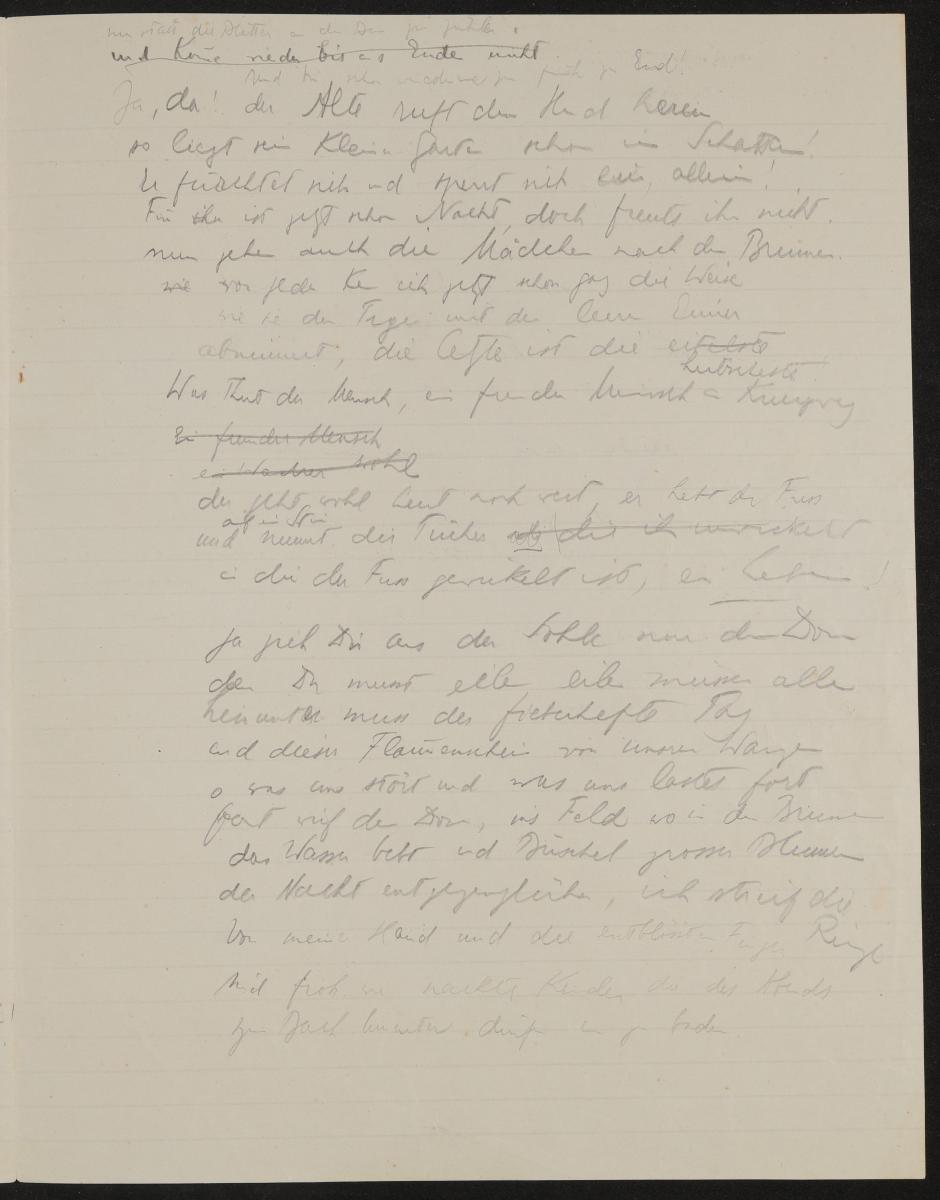 und komme wieder bis ans Ende nicht
zu früh zu End!
Ja, da! der Alte ruft den Hund herein
so liegt sein kleiner Garten schon im Schatten!
Er fürchtet sich und sperrt sich ein, allein!
Für ihn ist jetzt schon Nacht, doch freuts ihn nicht.
nun gehen auch die Mädchen nach dem Brunnen.
wie von jeder Ken ich jetzt schon ganz die Weise
wie sie den Träger mit den leeren Eimern
abnimmt, die letzte ist die eitelste
hübscheste
Was thut der Mensch, ein fremder Mensch am Kreuzweg
Ein fremder Mensch
ein Wandrer wohl
der geht wohl heut noch weit, er hebt den Fuss
auf ein Stein
und nimmt die Tücher ab die ihn umwickelt
in die der Fuss gewickelt ist, ein Leben!
Ja zieh Dir aus der Sohle nur den Dorn
denn Du musst eilen, eilen müssen alle
hinunter muss der fieberhafte Tag
und dieser Flammenschein von unseren Wangen
o was uns stört und was uns lastet fort
fort wirf den Dorn, ins Feld wo in den Brunnen
das Wasser bebt und Büschel grosser Blumen
der Nacht entgegenglühen, ich streif die Ringe
Von meiner Hand und die entblössten Finger
Sind froh wie nackte Kinder die des Abends
zum Bach hinunter dürfen um zu baden